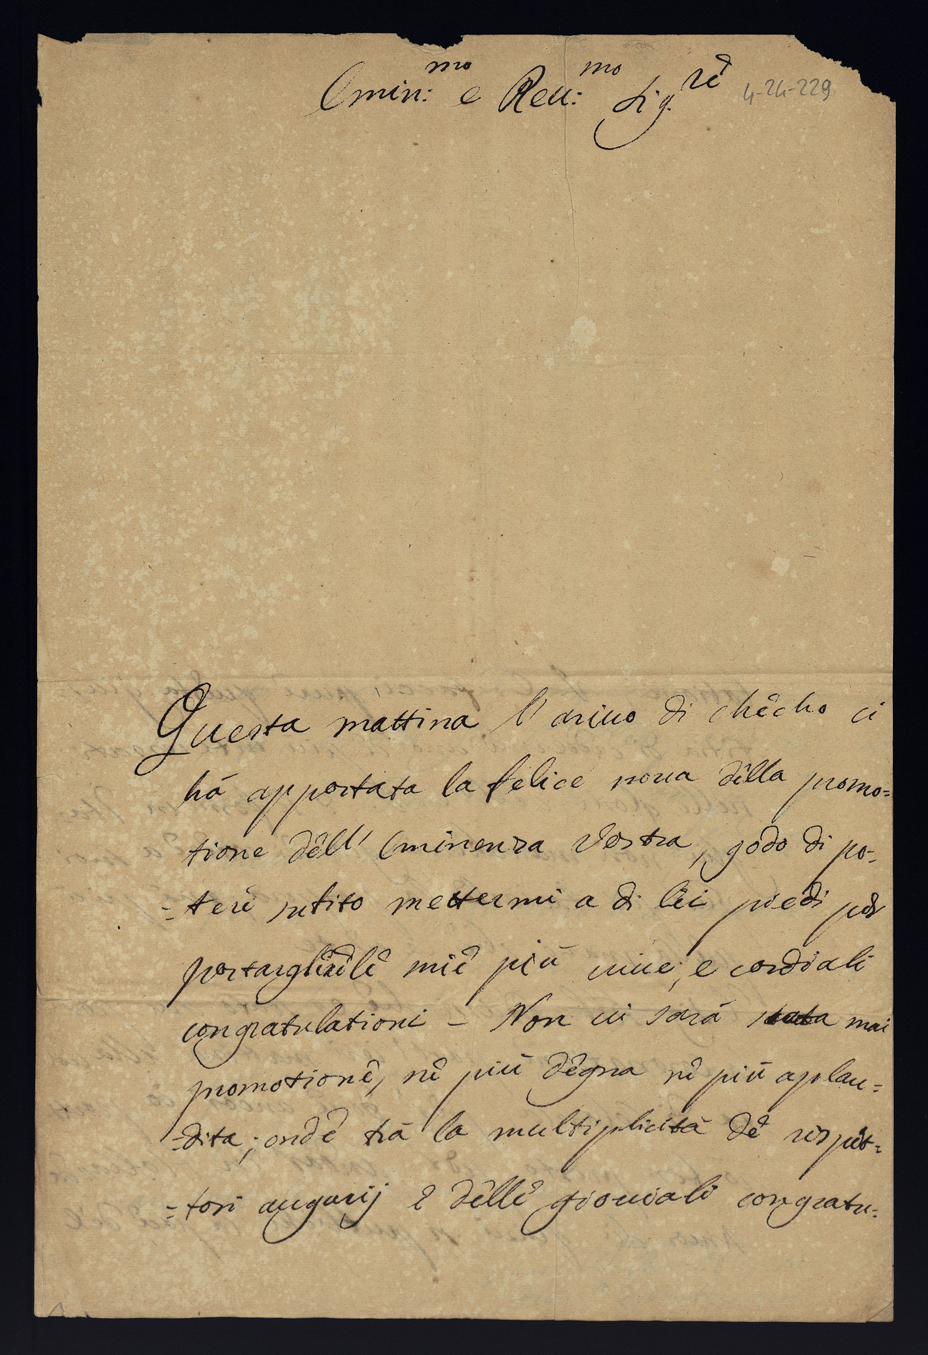 Emin:mo e Reu:mo Sig.re
4-24-229
Questa mattina l'ariuo di Chècho ci
hà apportata la felice noua della promo=
tione dell'Eminenza Vostra, godo di po=
=tere subito mettermi a di lei piedi per
portargli le mie più uiue, e cordiali
congratulationi - Non ui sarà stata mai
promotione, nè più degna nè più aplau=
=dita; onde trà la multiplicità de
=tori augurij e delle giouiali congratu=